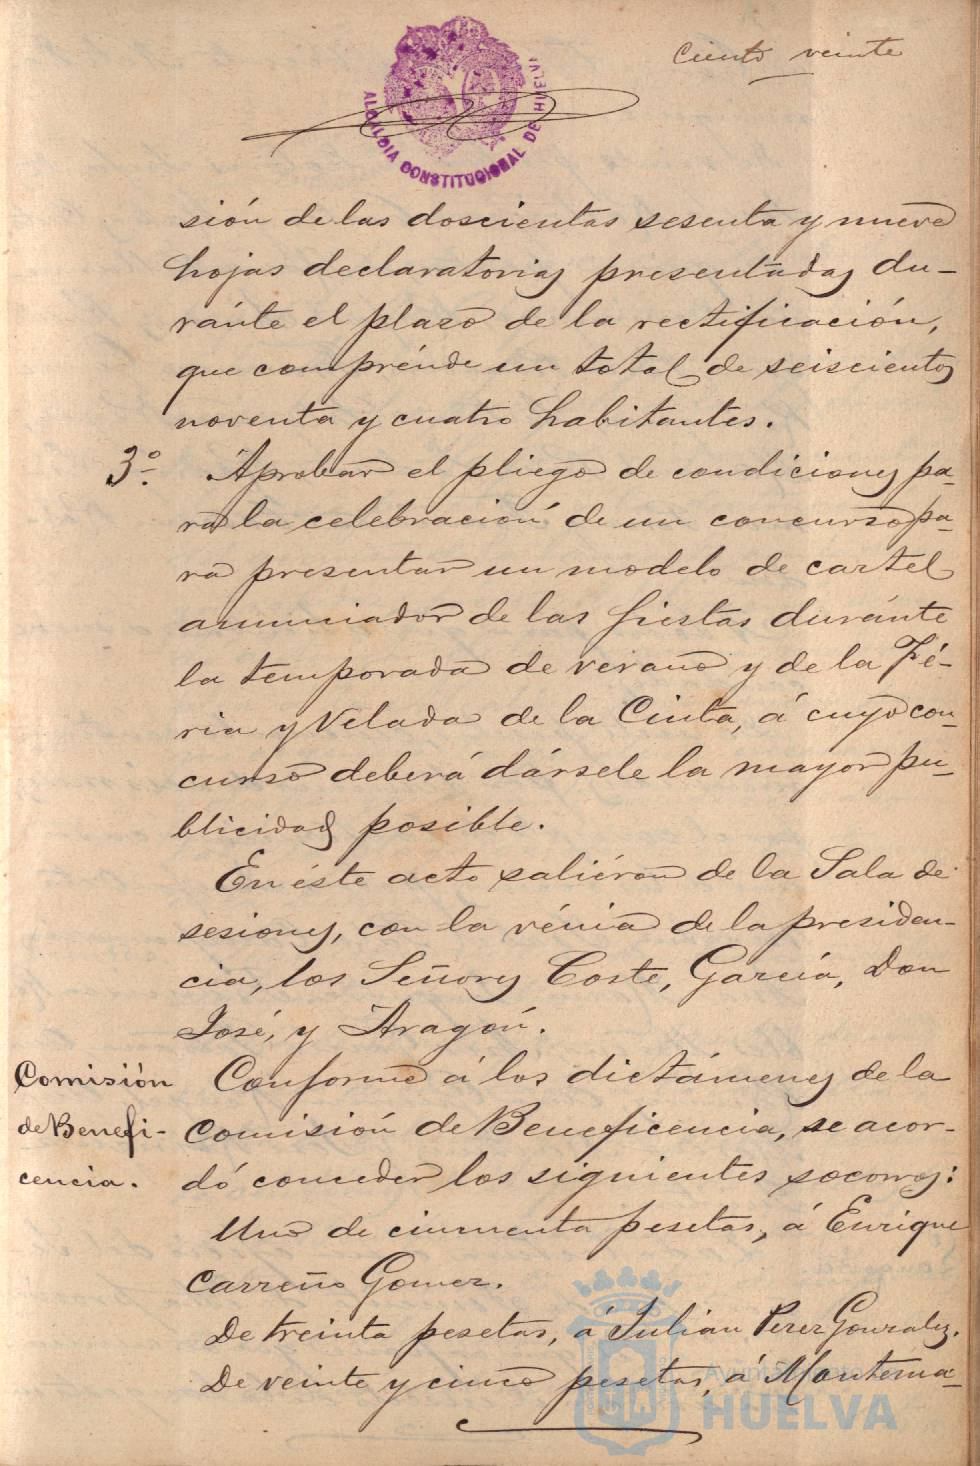 Ciento veinte
ALCALDIA CONSTITUCIONAL DE HUELVA
sión de las doscientas sesenta y nueve
hojas declaratorias presentadas du-
ránte el plazo de la rectificación,
que comprénde un total de seiscientos
noventa y cuatro habitantes.
3º Aprobar el pliego de condiciones pa-
ra la celebración de un concurso pa-
ra presentar un modelo de cartel
anunciador de las fiestas duránte
la temporada de verano y de la Fé-
ria y Velada de la Cinta, á cuyo con-
curso deberá dársele la mayor pu-
blicidad posible.
En éste acto saliéron de la Sala de
sesiones, con la vénia de la presiden-
cia, los Señores Coste, García, Don
José, y Aragón.
Comisión
de Benefi-
cencia.
Conforme á los dictámenes de la
Comisión de Beneficencia, se acor-
dó conceder los siguientes socorros:
Uno de cincuenta pesetas, á Enrique
Carreño Gomez.
De treinta pesetas, á Julian Perez Gonzalez.
De veinte y cinco pesetas, á Montema-
Ayuntamiento
HUELVA